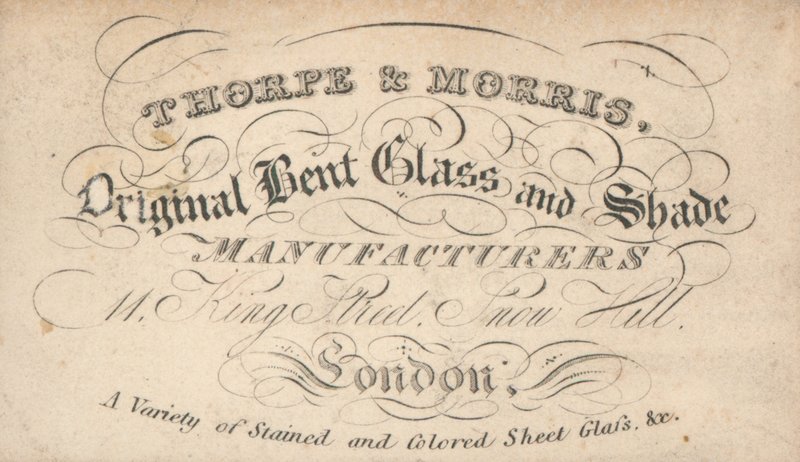 THORPE & MORRIS,
Original Bent Glass and Shade
MANUFACTURERS
11. King Street. Snow Hill.
London;
A Variety of Stained and Colored Sheet Glaſs. &c.